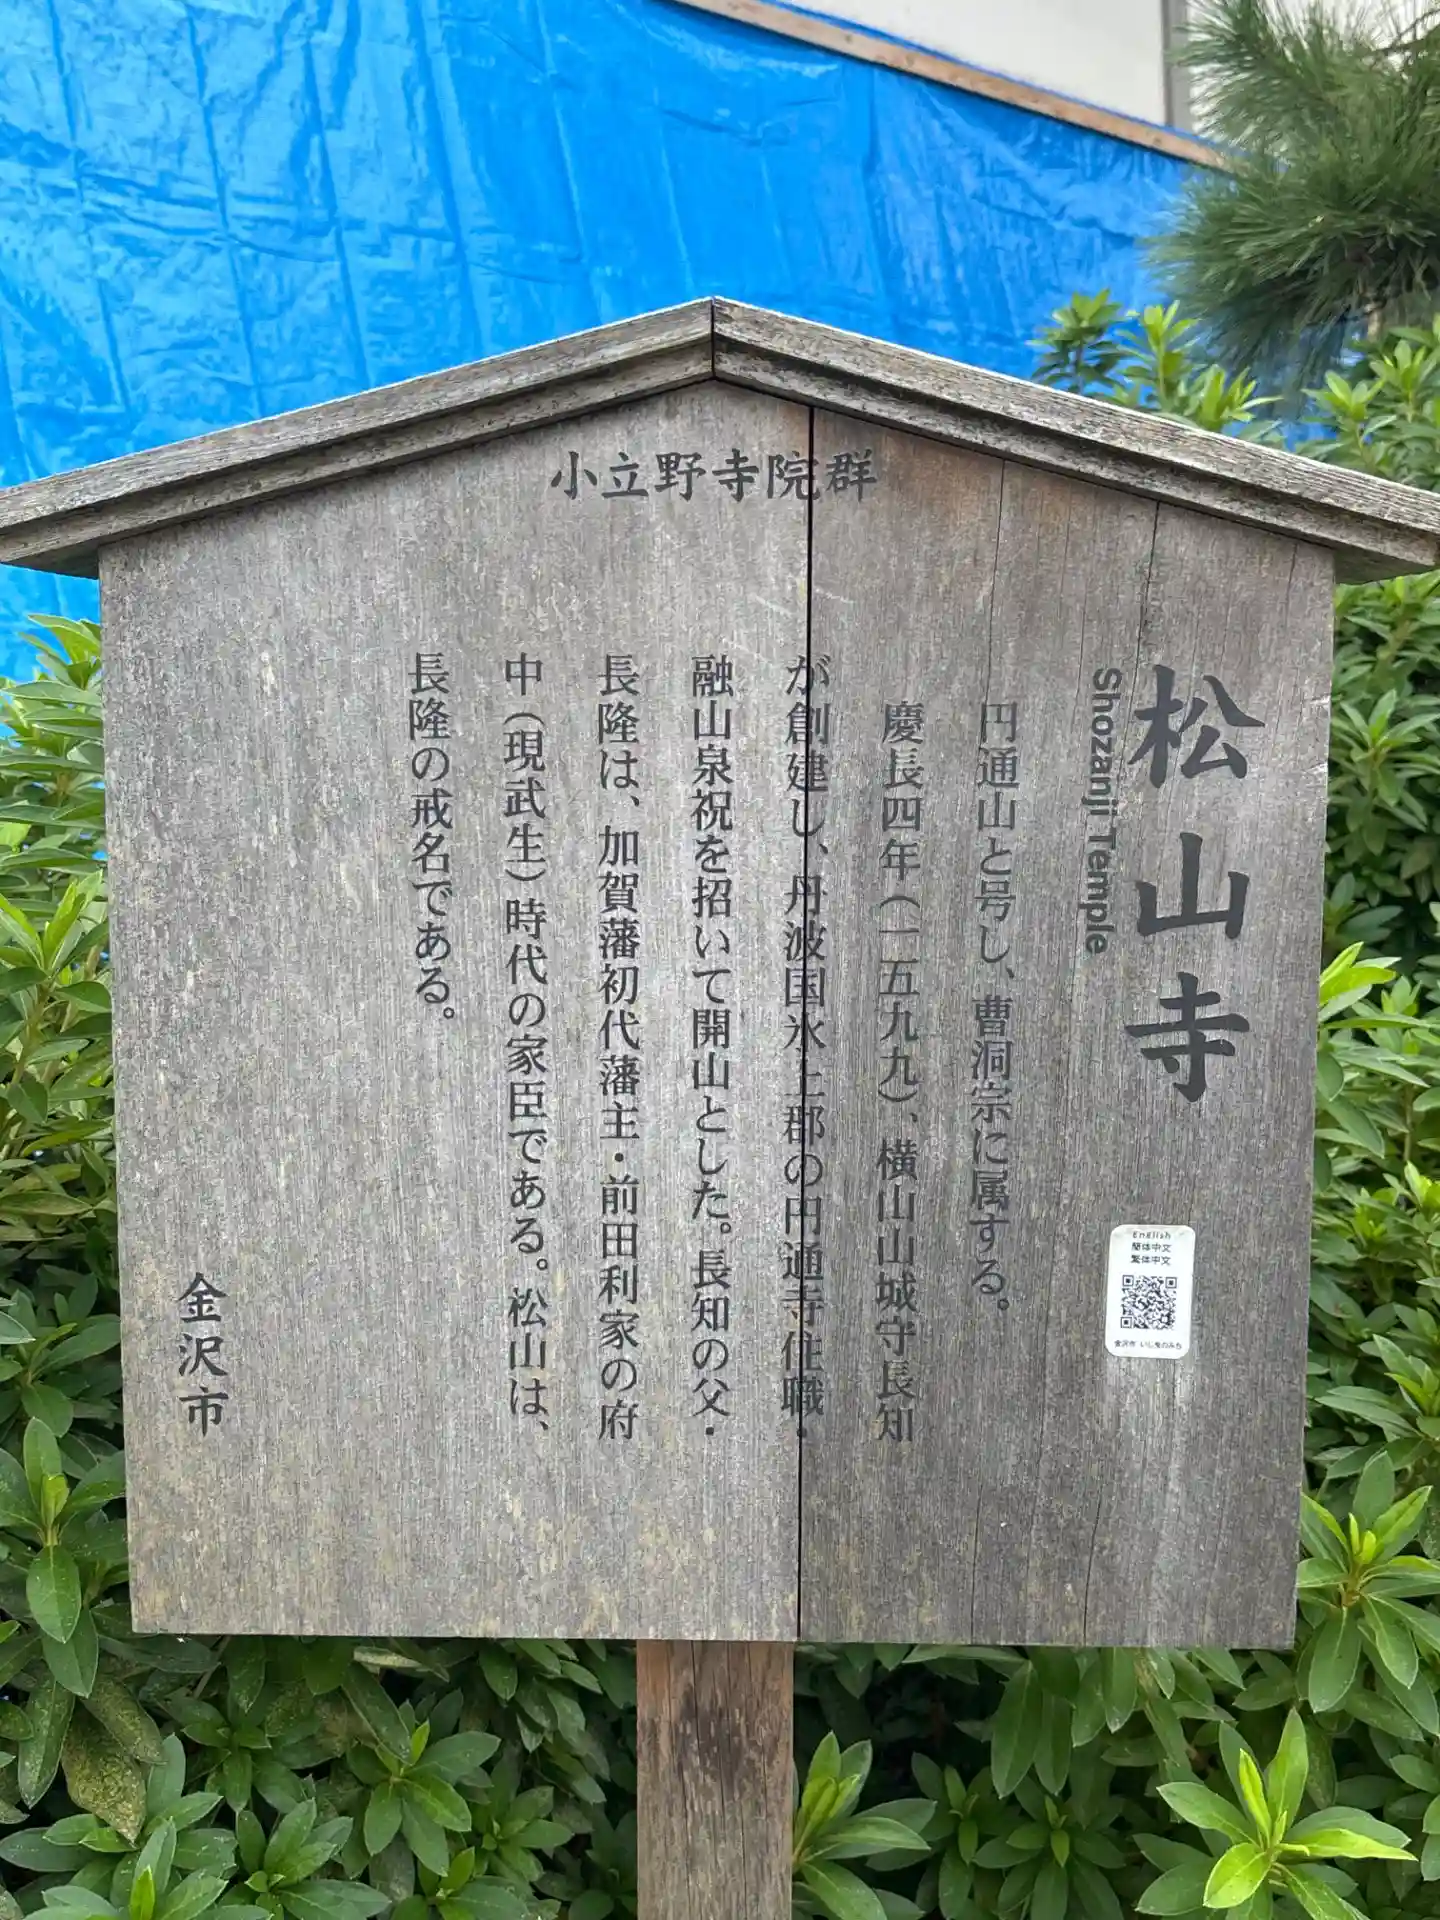 小立野寺院群
松山寺
Shozanji Temple
円通山と号し、曹洞宗に属する。
慶長四年(一五九九)、横山山城守長知
が創建し、丹波国氷上郡の円通寺住職・
融山泉祝を招いて開山とした。長知の父・
長隆は、加賀藩初代藩主・前田利家の府
中(現武生)時代の家臣である。松山は、
長隆の戒名である。
金沢市
English
簡体中文
繁体中文
金沢市 いしぶみのみち